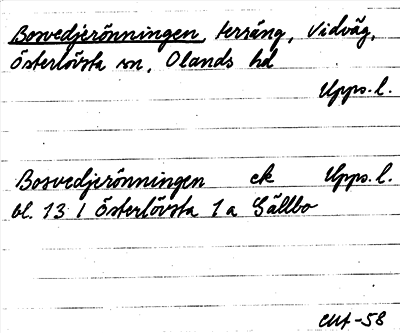 Bosvedjerönningen, terräng, Vidväg,
Österlövsta sn, Olands hd
Upps. l.
Bosvedjerönningen ek Upps. l.
bl. 13 I Österlövsta 1a Gällbo
-58